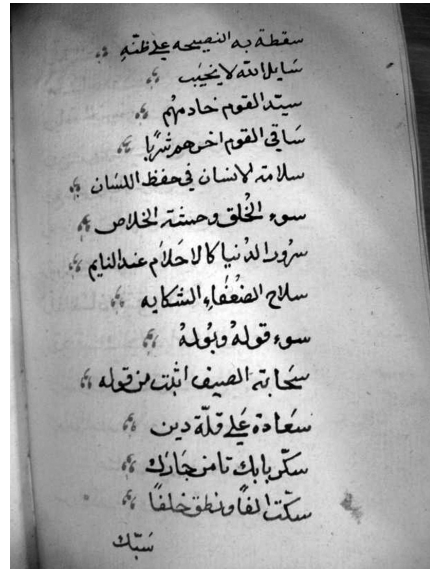 سقطة به النصيحه علي ظنه
سايل الله لا يخيب
سيد القوم خادمهم
ساقي القوم اخرهم شربا
سلامة الانسان في حفظ اللسان
سوء الخلق وحشة الخلاص
سرور الدنيا كالاحلام عند النايم
سلاح الضعفاء الشكايه
سوء قوله وبوله
سحابة الصيف اثبت من قوله
سعادة علي قلة دين
سكر بابك تامن جارك
سكت الفا ونطق خلفا
سبك